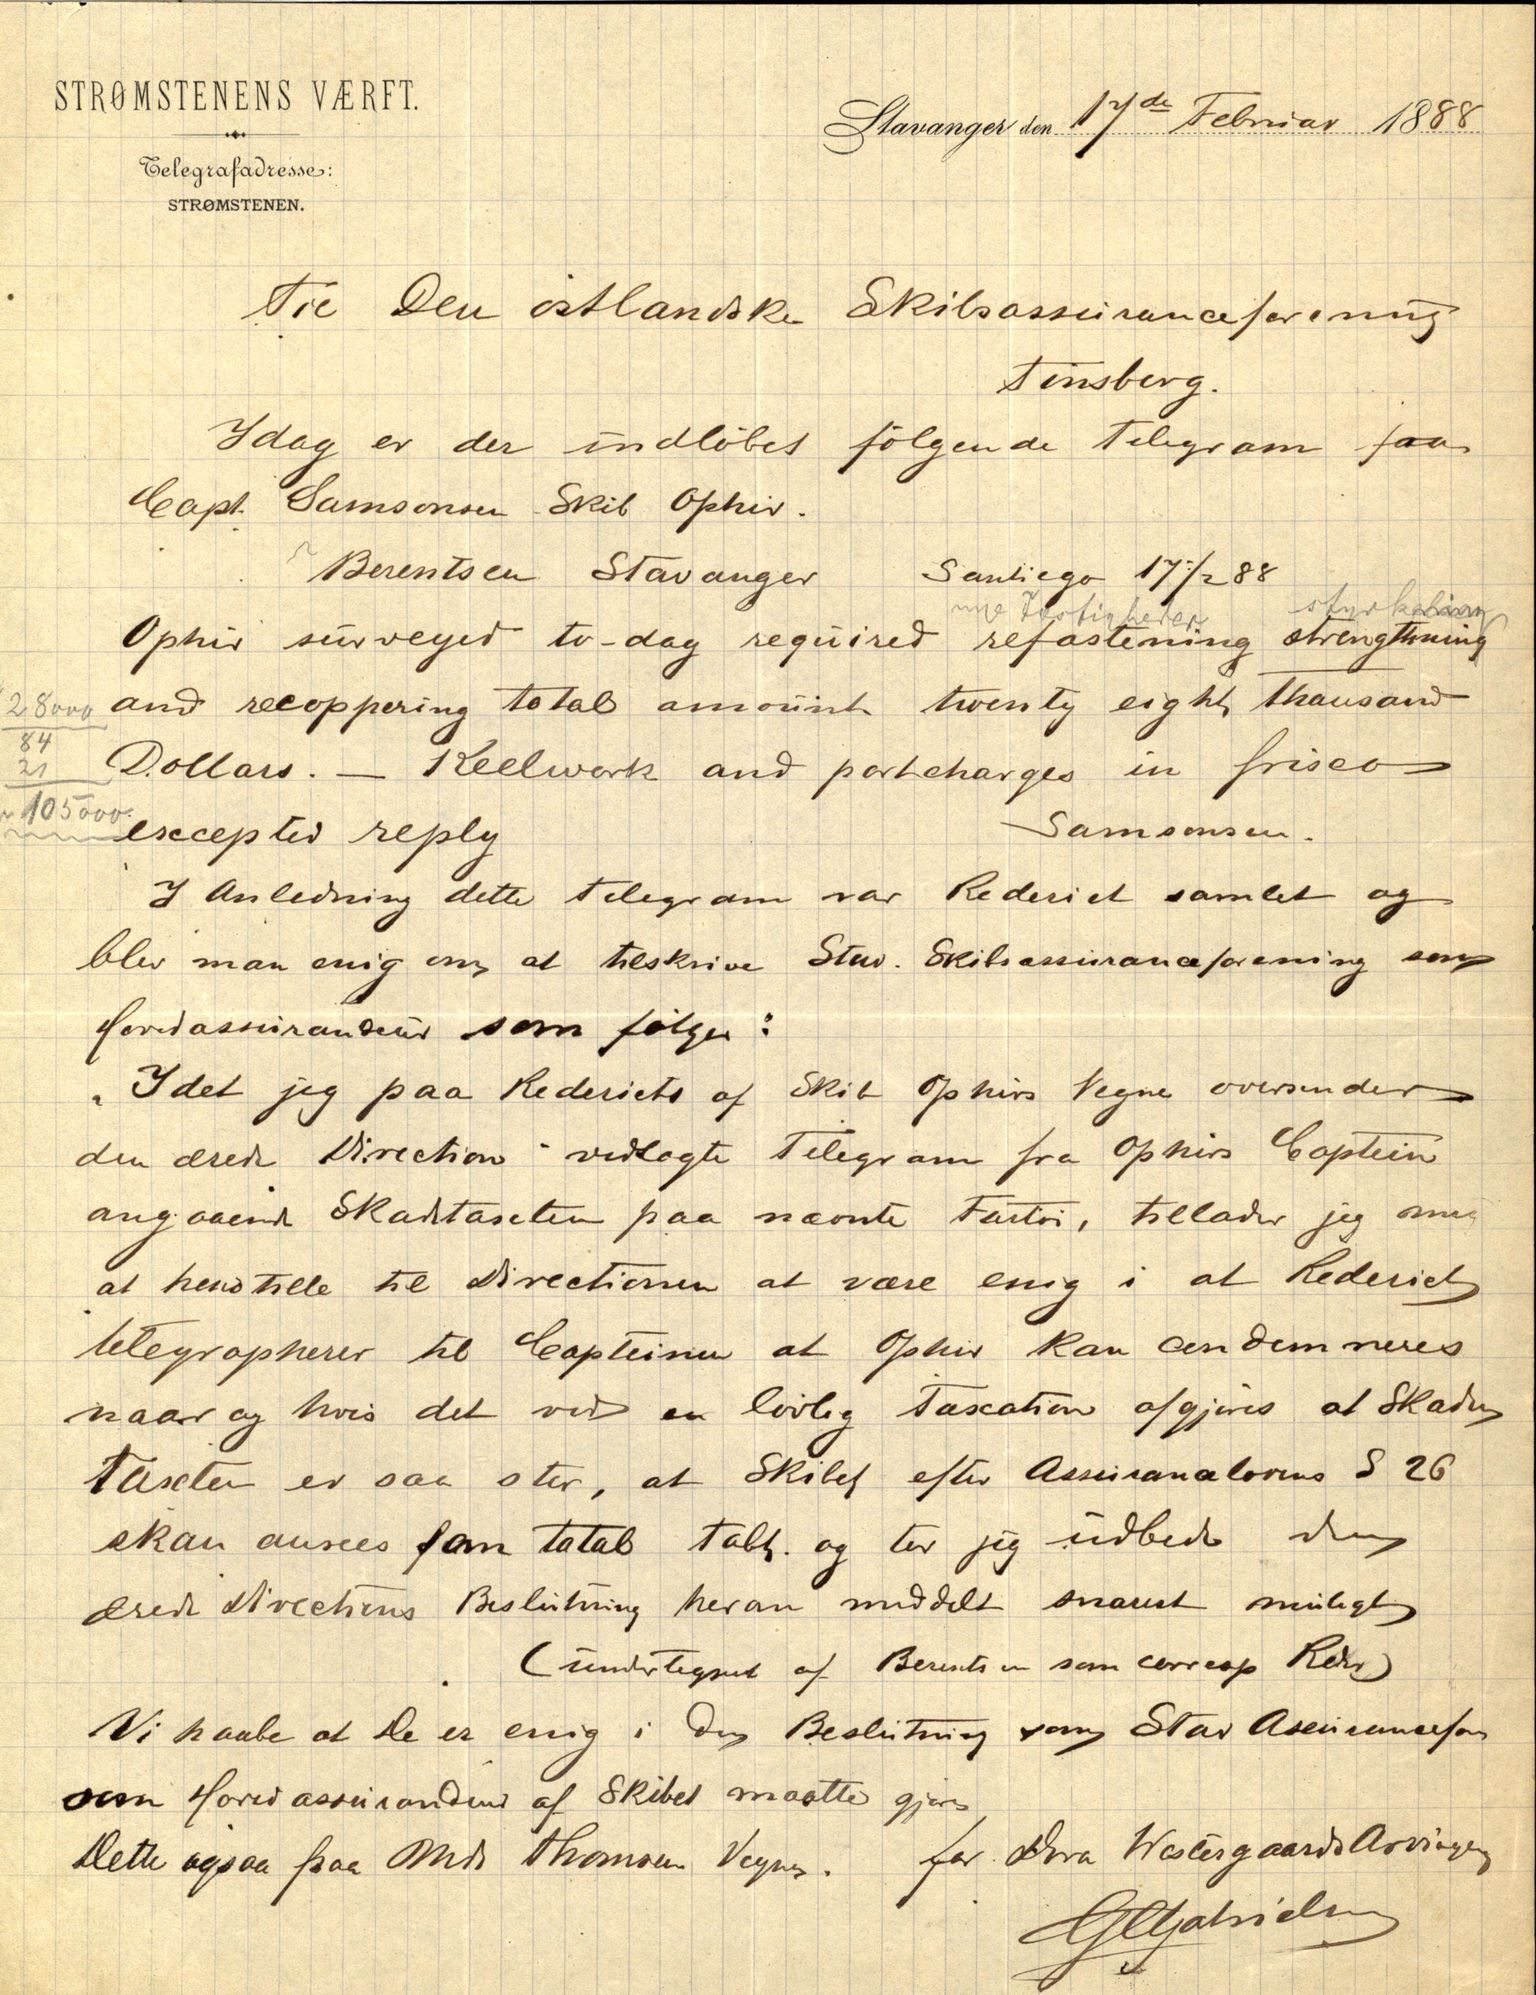 STRØMSTENENS VÆRFT.
Telegrafadresse:
STRØMSTENEN.
Stavanger den 17de Februar 1888
Til Den östlandske Skibsassuranceforening
Tönsberg.
Idag er der indlöbet fölgende Telegram fra
Capt. Samsonsen Skib Ophir.
Berentsen Stavanger Santiego 17/2 88
nye Fastigheder styrkening
Ophir surveyed to-day required refastening strengthning
and recoppering total amount twenty eight thausand
28000
84
21
105000.
Dollars. — Keelwork and portcharges in frisco
excepted reply Samsonsen.
I Anledning dette Telegram var Rederiet samlet og
blev man enig om at tilskrive Stav. Skibsassuranceforening som
Hovedassurandeur som fölger:
"Idet jeg paa Rederiets af Skib Ophirs Vegne oversender
den ærede Direction vedlagte Telegram fra Ophirs Captein
angaaende Skadetaxten paa nævnte Fartöi, tillader jeg mig
at henstille til Directionen at være enig i at Rederiet
telegrapherer til Capteinen at Ophir kan condemneres
naar og hvis det ved en lövlig Taxation afgjöres at Skades
Taxten er saa stor, at Skibet efter Assurancelovens § 26
skan ansees som total tabt. og tör jeg udbede den
ærede Directions Beslutning herom meddelt snarest muligt
(undertegnet af Berentsen som corresp Reder)
Vi haabe at De er enig i den Beslutning som Stav Assurancefor
som Hovedassurandeur af Skibet maatte gjöre
Dette ogsaa paa Mds Thomsen Vegne. for Dvra Westergaards Arvinger
G Gabrielsen